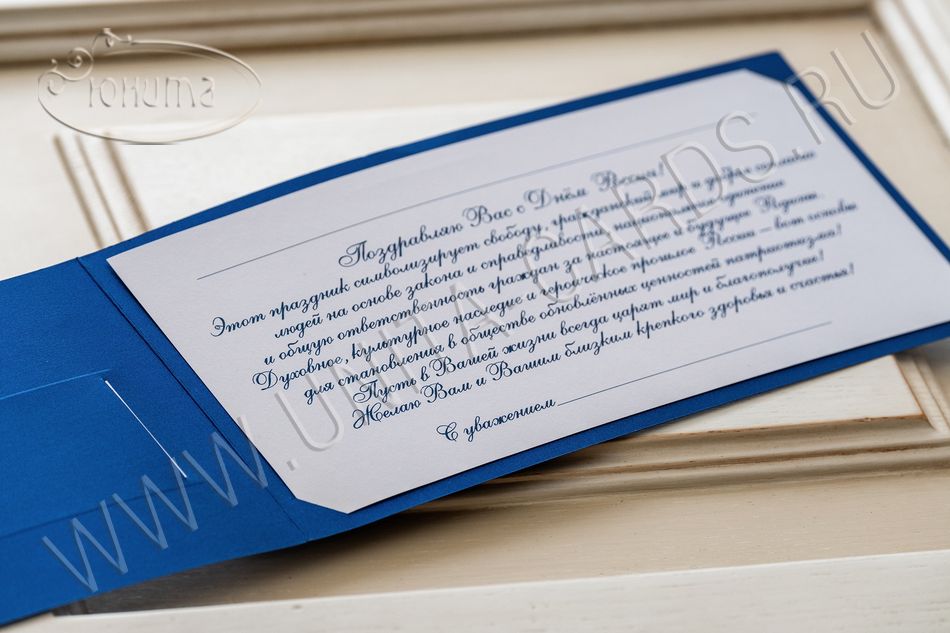 Юнита
Поздравляю Вас с Днём России!
Этот праздник символизирует свободу, гражданский мир и доброе согласие
людей на основе закона и справедливости, национальное единение
и общую ответственность граждан за настоящее и будущее Родины.
Духовное, культурное наследие и геройское прошлое России – вот основы
для становления в обществе обновлённых ценностей патриотизма!
Пусть в Вашей жизни всегда царят мир и благополучие!
Желаю Вам и Вашим близким крепкого здоровья и счастья!
С уважением
WWW.UNITA-CARDS.RU